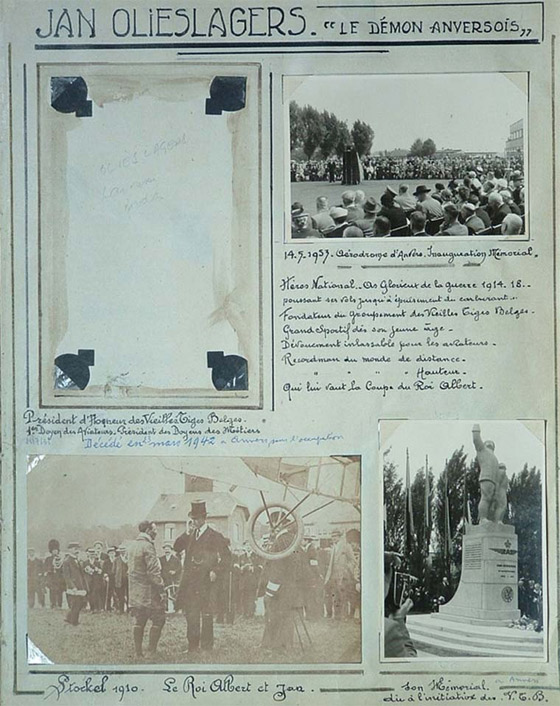 JAN OLIESLAGERS. "LE DÉMON ANVERSOIS„
OLIESLAGERS
14.5.1953. Aérodrome d'Anvers. Inauguration Mémorial.
Héros National. As Glorieux de la guerre 1914.18..
poussant ses vols jusqu'à épuisement du carburant..
Fondateur du groupement des Vieilles Tiges Belges.
Grand Sportif dès son jeune âge.
Dévouement inlassable pour les aviateurs.
Recordman du monde de distance.
" " " " Hauteur.
Qui lui vaut la Coupe du Roi Albert.
Président d'Honneur des Vieilles Tiges Belges.
1er Doyen des Aviateurs. Président des Doyens des Métiers
Décédé en mars 1942 à Anvers sous l'occupation
Stockel 1910. Le Roi Albert et Jan.
à Anvers
Son Mémorial.
dû à l'initiative des V.T.B.